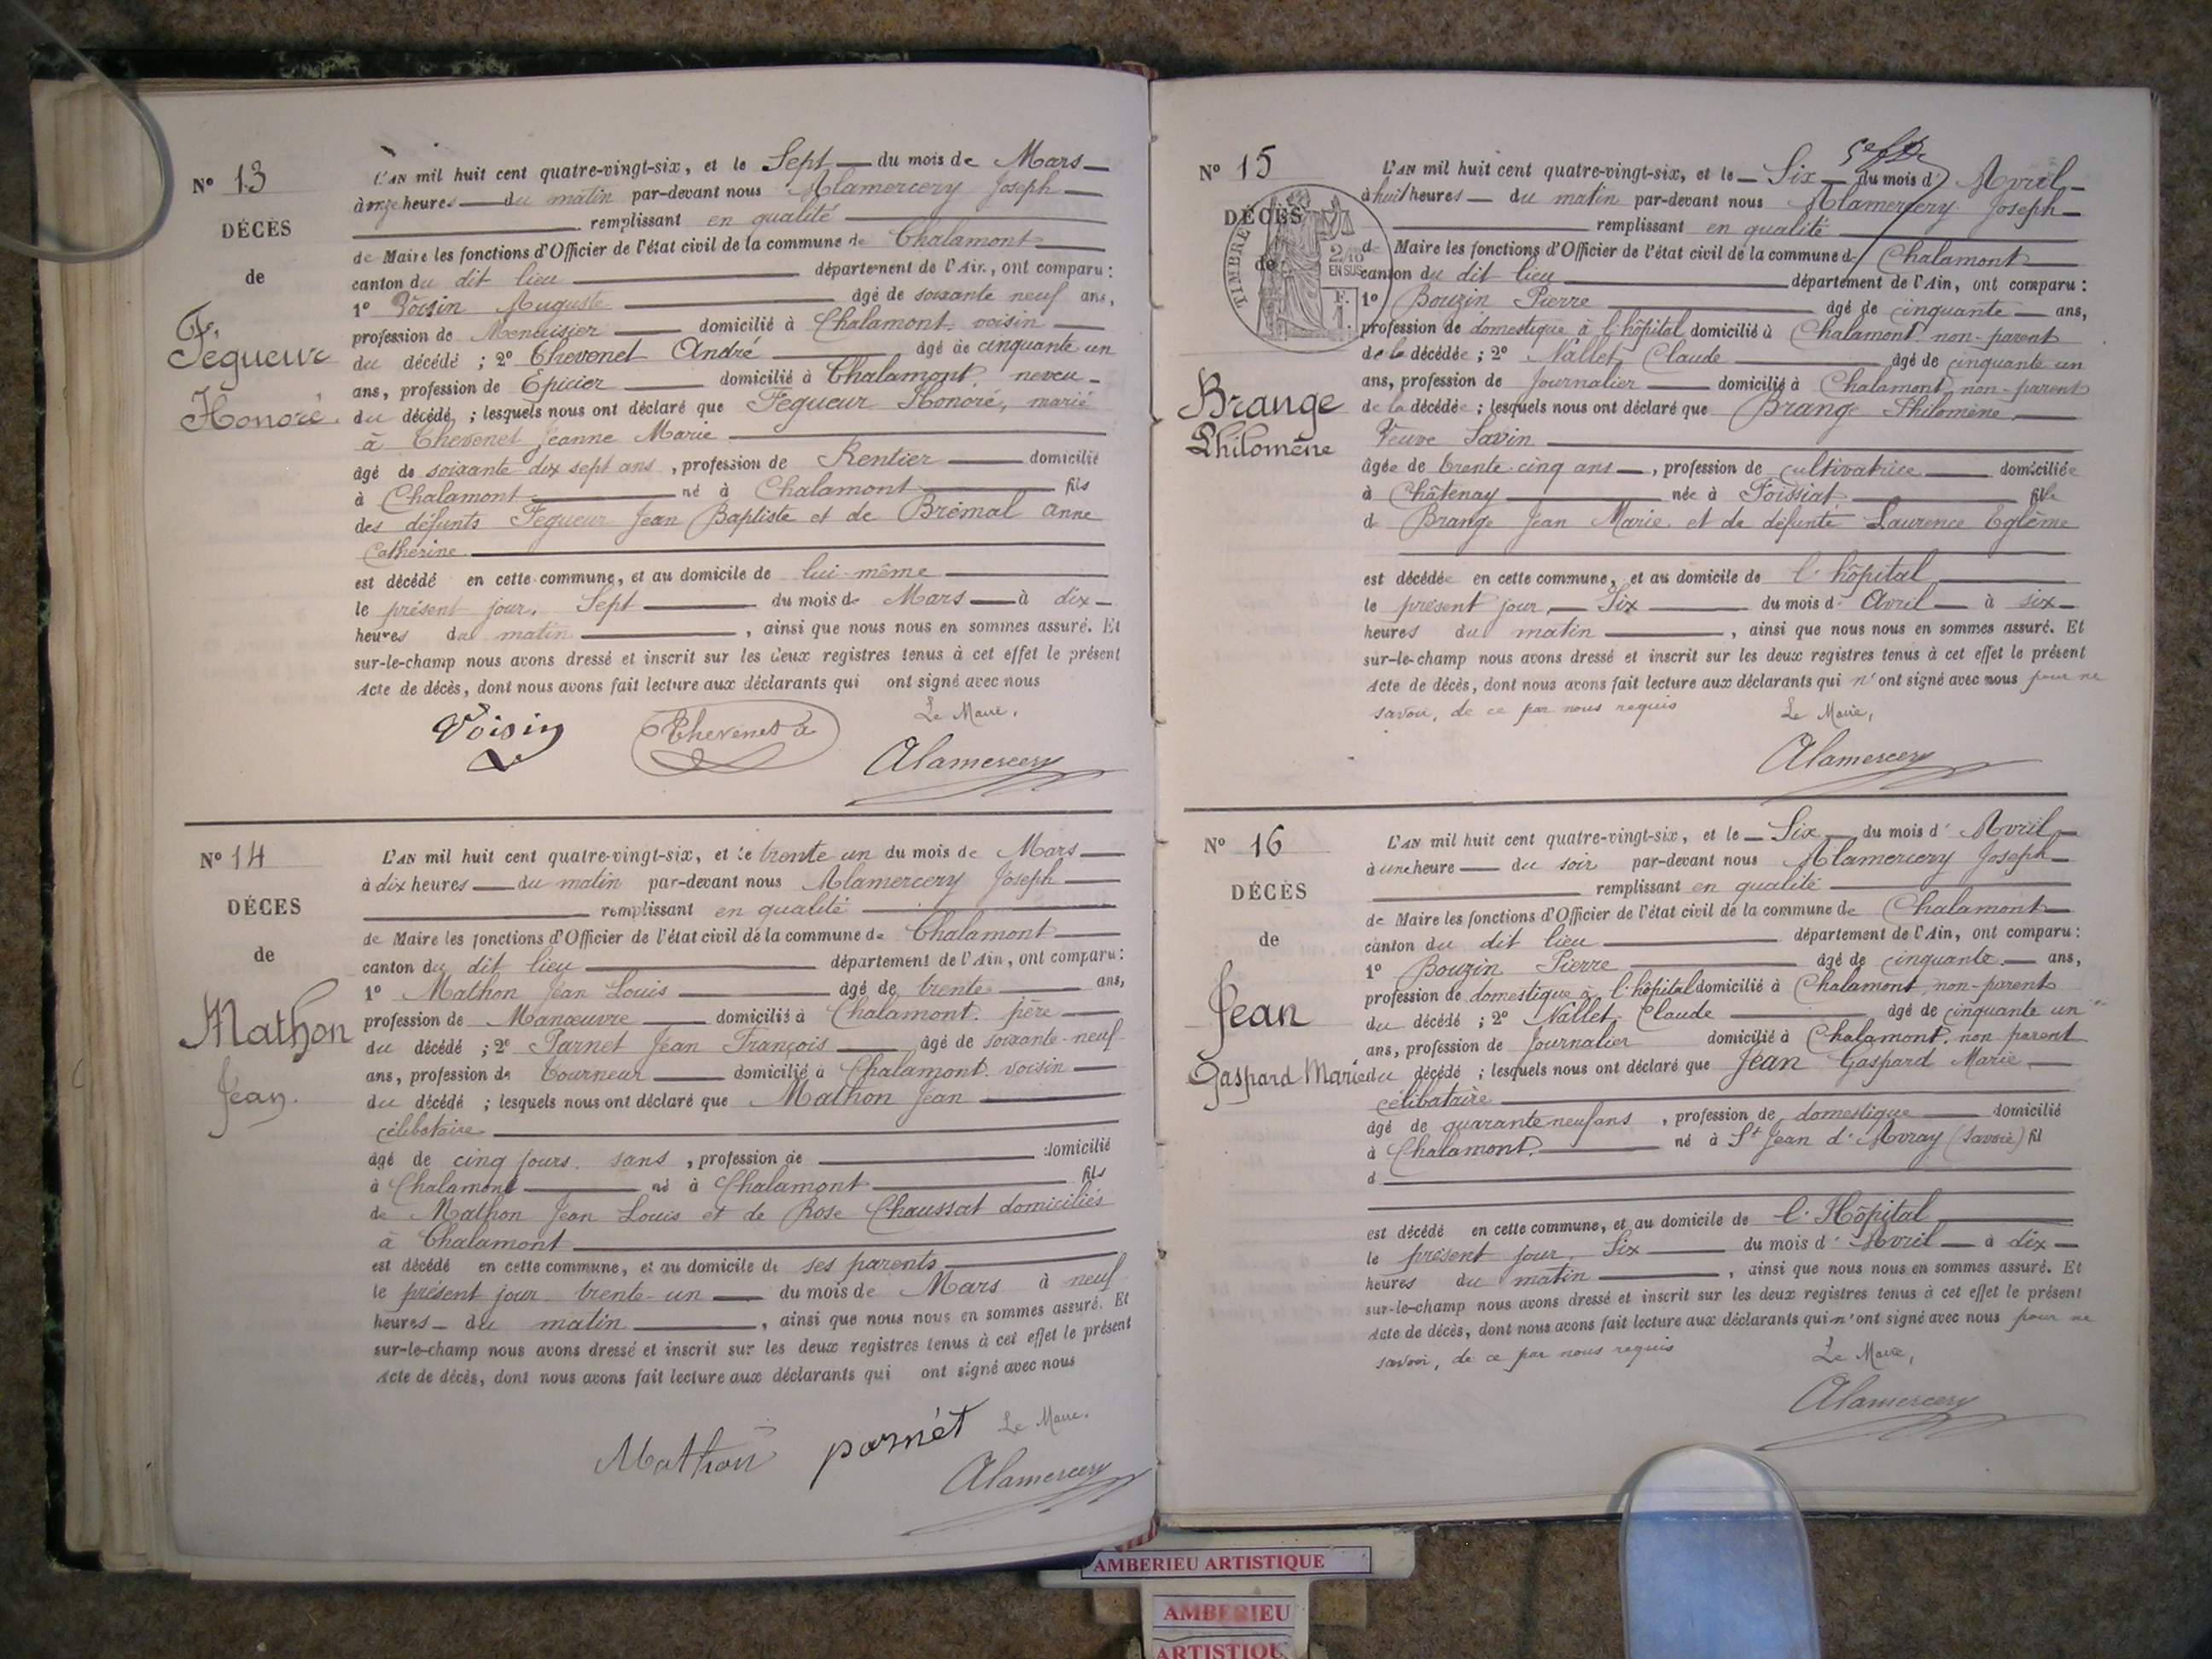 N° 13
DÉCÈS
de
Fequeur
Honoré.
L'AN mil huit cent quatre-vingt-six, et le Sept du mois de Mars
à onze heures du matin par-devant nous Alamercery Joseph
remplissant en qualité
de Maire les fonctions d'Officier de l'état civil de la commune de Chalamont
canton du dit lieu département de l'Ain, ont comparu :
1° Voisin Auguste âgé de soixante neuf ans,
profession de Menuisier domicilié à Chalamont, voisin
du décédé ; 2° Thevenet André âgé de cinquante un
ans, profession de Epicier domicilié à Chalamont, neveu
du décédé ; lesquels nous ont déclaré que Fequeur Honoré, marié
à Thevenet Jeanne Marie
âgé de soixante dix sept ans, profession de Rentier domicilié
à Chalamont né à Chalamont fils
des défunts Fequeur Jean Baptiste et de Brémal Anne
Catherine
est décédé en cette commune, et au domicile de lui-même
le présent jour, Sept du mois de Mars à dix
heures du matin, ainsi que nous nous en sommes assuré. Et
sur-le-champ nous avons dressé et inscrit sur les deux registres tenus à cet effet le présent
Acte de décès, dont nous avons fait lecture aux déclarants qui ont signé avec nous
Le Maire,
Voisin Thevenet a Alamercery
N° 14
DÉCÈS
de
Mathon
Jean.
L'AN mil huit cent quatre-vingt-six, et le trente un du mois de Mars
à dix heures du matin par-devant nous Alamercery Joseph
remplissant en qualité
de Maire les fonctions d'Officier de l'état civil de la commune de Chalamont
canton du dit lieu département de l'Ain, ont comparu :
1° Mathon Jean Louis âgé de trente ans,
profession de Manœuvre domicilié à Chalamont. père
du décédé ; 2° Parnet Jean François âgé de soixante-neuf
ans, profession de tourneur domicilié à Chalamont. voisin
du décédé ; lesquels nous ont déclaré que Mathon Jean
célibataire
âgé de cinq jours. sans, profession de domicilié
à Chalamont né à Chalamont fils
de Mathon Jean Louis et de Rose Chaussat domiciliés
à Chalamont
est décédé en cette commune, et au domicile de ses parents
le présent jour trente-un du mois de Mars à neuf
heures du matin, ainsi que nous nous en sommes assuré. Et
sur-le-champ nous avons dressé et inscrit sur les deux registres tenus à cet effet le présent
Acte de décès, dont nous avons fait lecture aux déclarants qui ont signé avec nous
Le Maire.
Mathon parnet Alamercery
N° 15
DÉCÈS
de
TIMBRE
2/10
EN SUS
F.
1.
Brange
Philomène
L'AN mil huit cent quatre-vingt-six, et le Six du mois d' Avril
à huit heures du matin par-devant nous Alamercery Joseph
remplissant en qualité
de Maire les fonctions d'Officier de l'état civil de la commune de Chalamont
canton du dit lieu département de l'Ain, ont comparu :
1° Bouzin Pierre âgé de cinquante ans,
profession de domestique à l'hôpital domicilié à Chalamont non-parent
de la décédée ; 2° Nallet Claude âgé de cinquante un
ans, profession de Journalier domicilié à Chalamont, non-parent
de la décédée ; lesquels nous ont déclaré que Brange Philomène
Veuve Savin
âgée de trente-cinq ans, profession de cultivatrice domiciliée
à Châtenay née à Foissiat fille
de Brange Jean Marie et de défunte Laurence Eglème
est décédée en cette commune, et au domicile de l'hôpital
le présent jour Six du mois d' Avril à six
heures du matin, ainsi que nous nous en sommes assuré. Et
sur-le-champ nous avons dressé et inscrit sur les deux registres tenus à cet effet le présent
Acte de décès, dont nous avons fait lecture aux déclarants qui n'ont signé avec nous pour ne
savoir, de ce par nous requis
Le Maire,
Alamercery
N° 16
DÉCÈS
de
Jean
Gaspard Marie
L'AN mil huit cent quatre-vingt-six, et le Six du mois d' Avril
à une heure du soir par-devant nous Alamercery Joseph
remplissant en qualité
de Maire les fonctions d'Officier de l'état civil de la commune de Chalamont
canton du dit lieu département de l'Ain, ont comparu :
1° Bouzin Pierre âgé de cinquante ans,
profession de domestique à l'hôpital domicilié à Chalamont, non-parent
du décédé ; 2° Nallet Claude âgé de cinquante un
ans, profession de Journalier domicilié à Chalamont, non parent
du décédé ; lesquels nous ont déclaré que Jean Gaspard Marie
célibataire
âgé de quarante neuf ans, profession de domestique domicilié
à Chalamont. né à St Jean d'Avray (Savoie) fil
d
est décédé en cette commune, et au domicile de l'Hôpital
le présent jour, Six du mois d' Avril à dix
heures du matin, ainsi que nous nous en sommes assuré. Et
sur-le-champ nous avons dressé et inscrit sur les deux registres tenus à cet effet le présent
Acte de décès, dont nous avons fait lecture aux déclarants qui n'ont signé avec nous pour ne
savoir, de ce par nous requis
Le Maire,
Alamercery
AMBERIEU ARTISTIQUE
AMBERIEU
ARTISTIQU